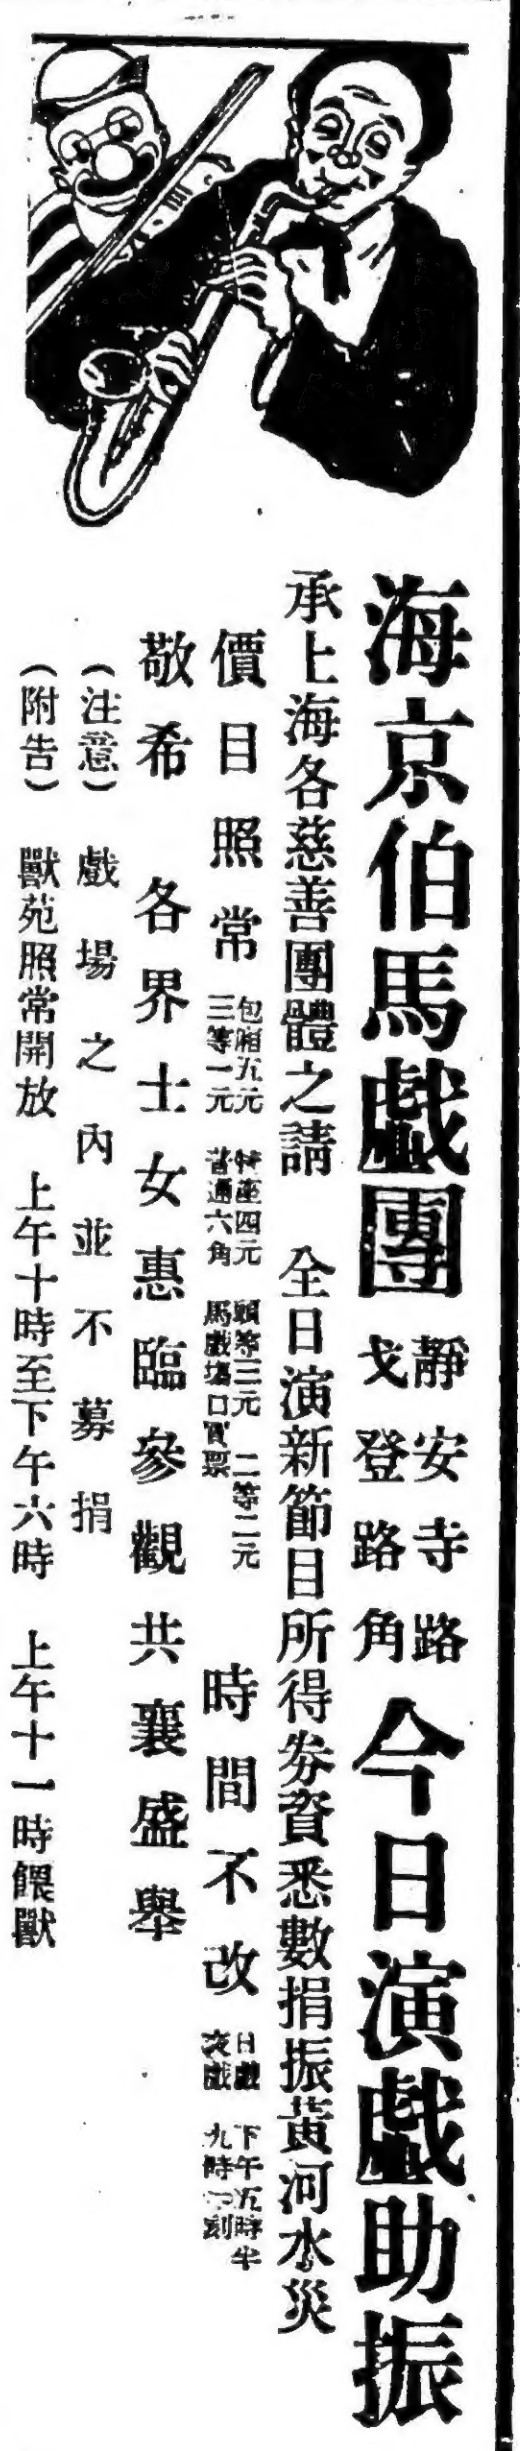 海京伯馬戲團
靜安寺路
戈登路角
今日演戲助振
承上海各慈善團體之請 全日演新節目所得券資悉數捐振黃河水災
價目照常
包廂五元 特座四元 頭等三元 二等二元
三等一元 普通六角 馬戲場口賣票
時間不改
日戲 下午五時半
夜戲 九時一刻
敬希 各界士女惠臨參觀共襄盛舉
(注意) 戲場之內並不募捐
(附告) 獸苑照常開放 上午十時至下午六時 上午十一時餵獸